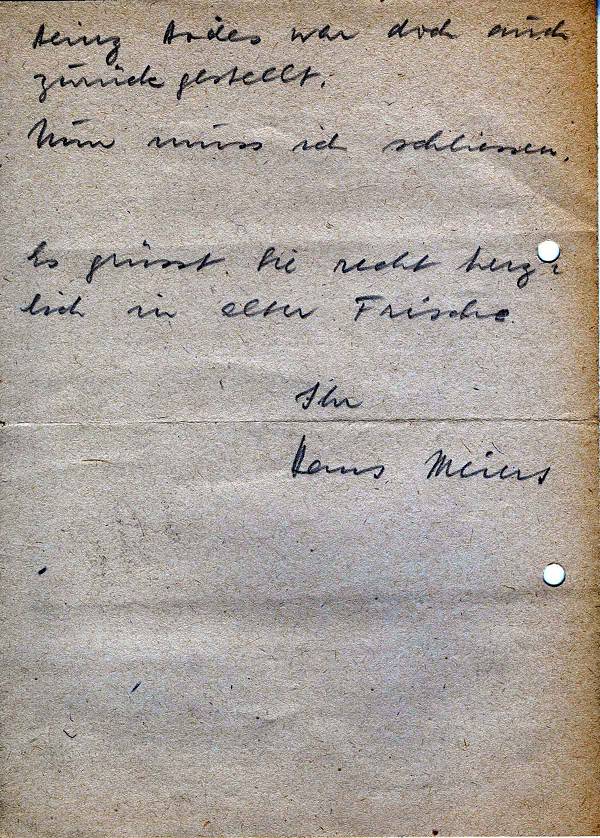 Heinz war doch auch
zurückgestellt.
Nun muss ich schliessen.
Es grüsst Sie recht herz-
lich in alter Frische.
Ihr
Hans Meiers